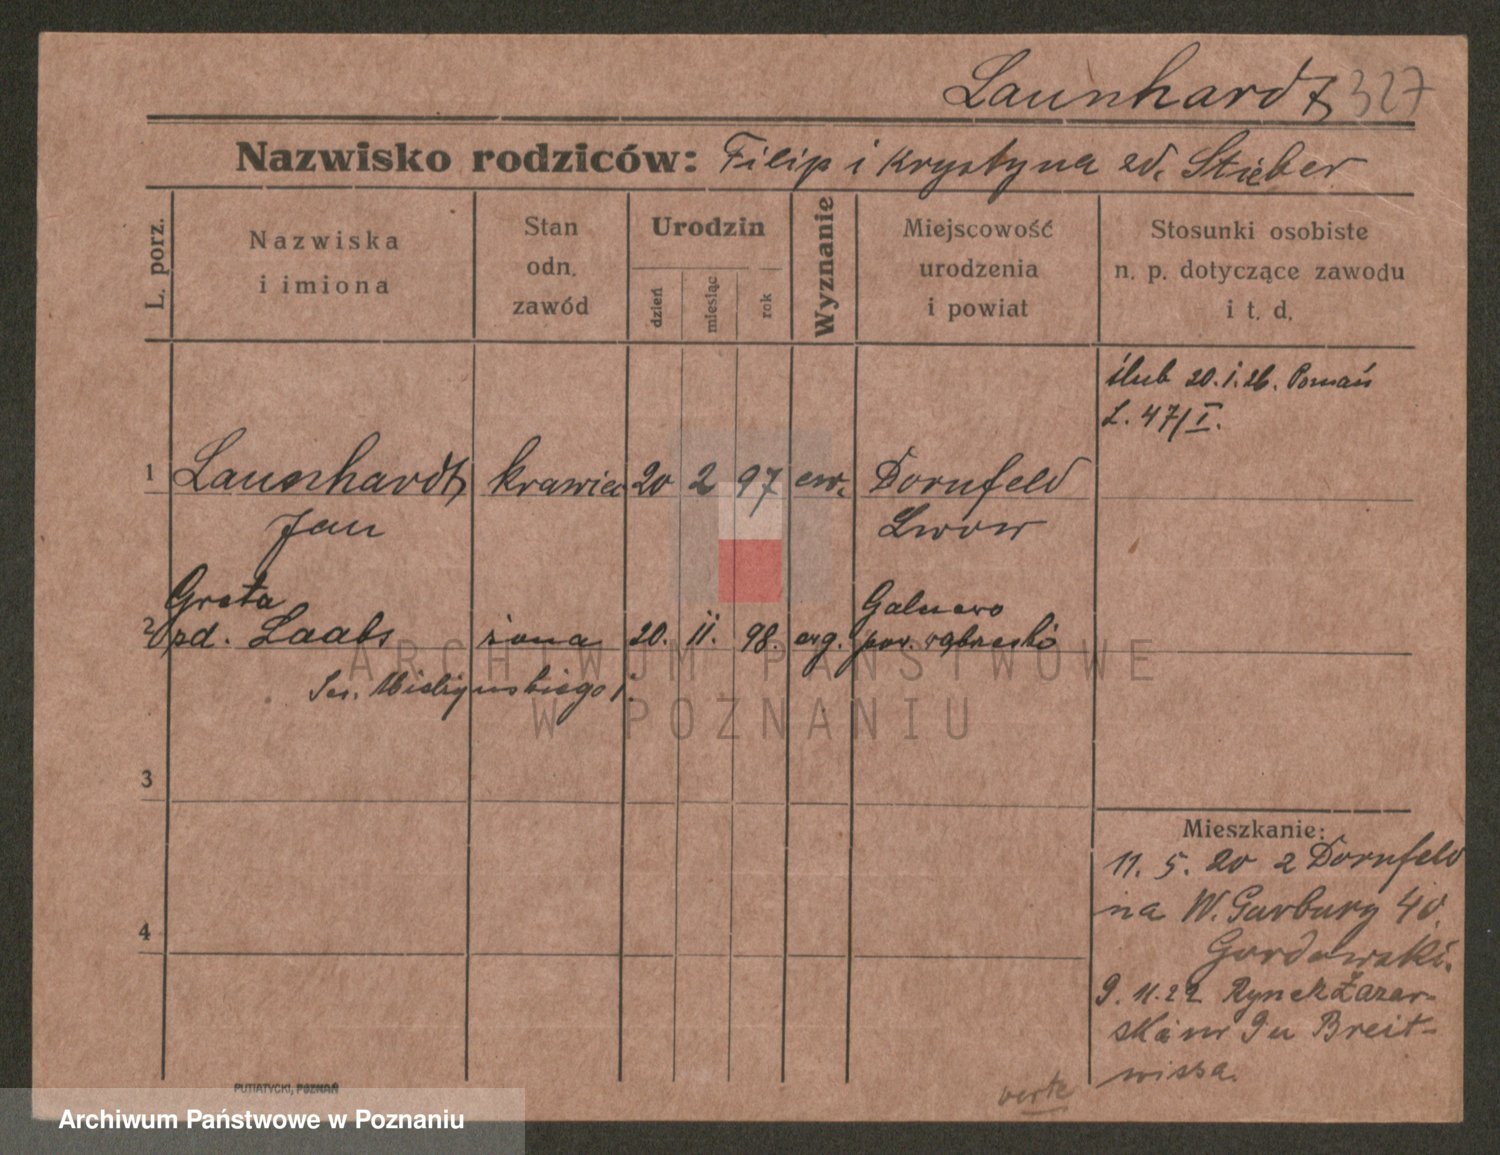 Launhardt 327
Nazwisko rodziców: Filip i Krystyna zd. Stieber
L. porz.
Nazwiska
i imiona
Stan
odn.
zawód
Urodzin
dzień
miesiąc
rok
Wyznanie
Miejscowość
urodzenia
i powiat
Stosunki osobiste
n. p. dotyczące zawodu
i t. d.
ślub 20.1.26. Poznań
L. 47/I.
1 Launhardt krawiec 20 2 97 ew. Dornfeld
Jan Lwow
Greta Galczewo
2 zd. Laabs żona 20. 11. 98. ewg. pow. wąbrzeski
ARCHIWUM PAŃSTWOWE
W POZNANIU
3
Mieszkanie:
11. 5. 20 z Dornfeld
na W. Garbary 40
4
Gordowski.
9. 11. 22 Rynek Łazar-
ski nr 9 u Breit-
wissa.
verte
PUTIATYCKI, POZNAŃ
Archiwum Państwowe w Poznaniu